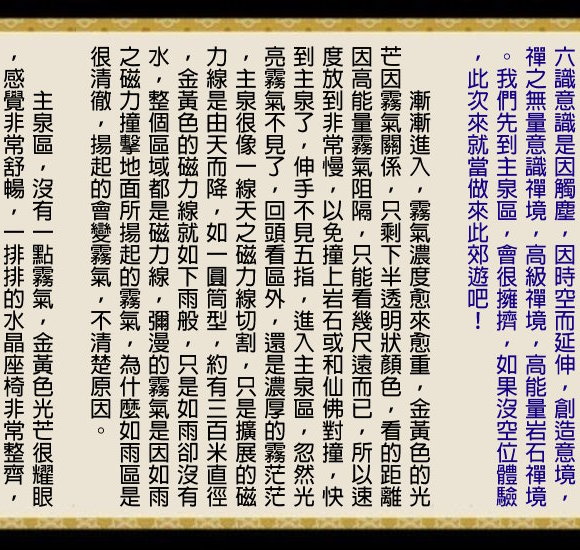 六識意識是因觸塵，因時空而延伸，創造意境，
禪之無量意識禪境，高級禪境，高能量岩石禪境
。我們先到主泉區，會很擁擠，如果沒空位體驗
，此次來就當做來此郊遊吧！
漸漸進入，霧氣濃度愈來愈重，金黃色的光
芒因霧氣關係，只剩下半透明狀顏色，看的距離
因高能量霧氣阻隔，只能看幾尺遠而已，所以速
度放到非常慢，以免撞上岩石或和仙佛對撞，快
到主泉了，伸手不見五指，進入主泉區，忽然光
亮霧氣不見了，回頭看區外，還是濃厚的霧茫茫
，主泉很像一線天之磁力線切割，只是擴展的磁
力線是由天而降，如一圓筒型，約有三百米直徑
，金黃色的磁力線就如下雨般，只是如雨卻沒有
水，整個區域都是磁力線，彌漫的霧氣是因如雨
之磁力撞擊地面所揚起的霧氣，為什麼如雨區是
很清徹，揚起的會變霧氣，不清楚原因。
主泉區，沒有一點霧氣，金黃色光芒很耀眼
，感覺非常舒暢，一排排的水晶座椅非常整齊，